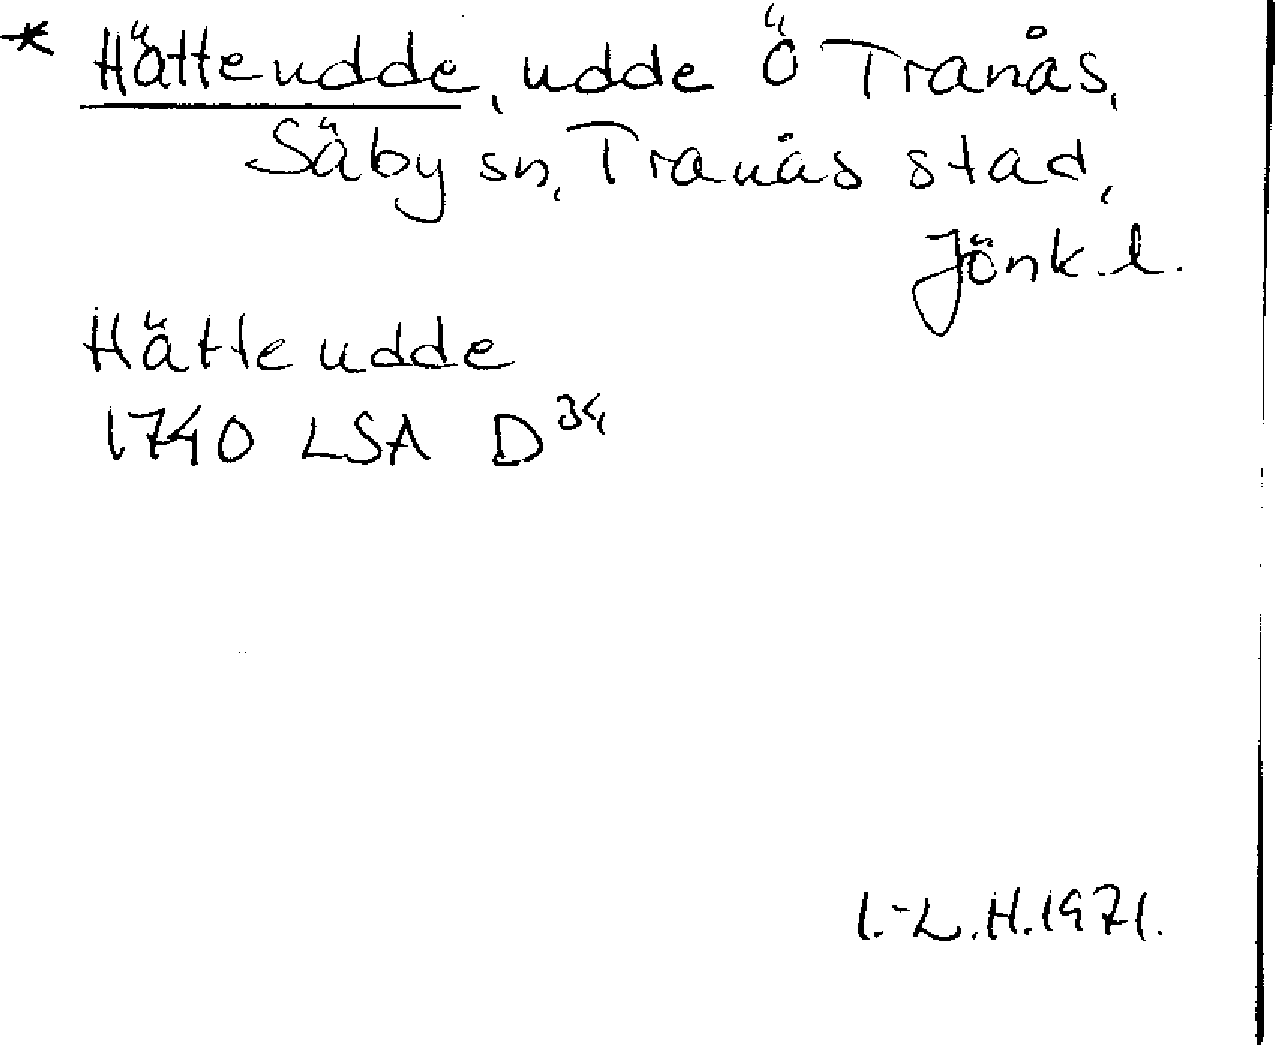 * Hätteudde, udde Ö Tranås,
Säby sn, Tranås stad,
Jönk. l.
Hätteudde
1740 LSA D34
I.-L.H.1971.